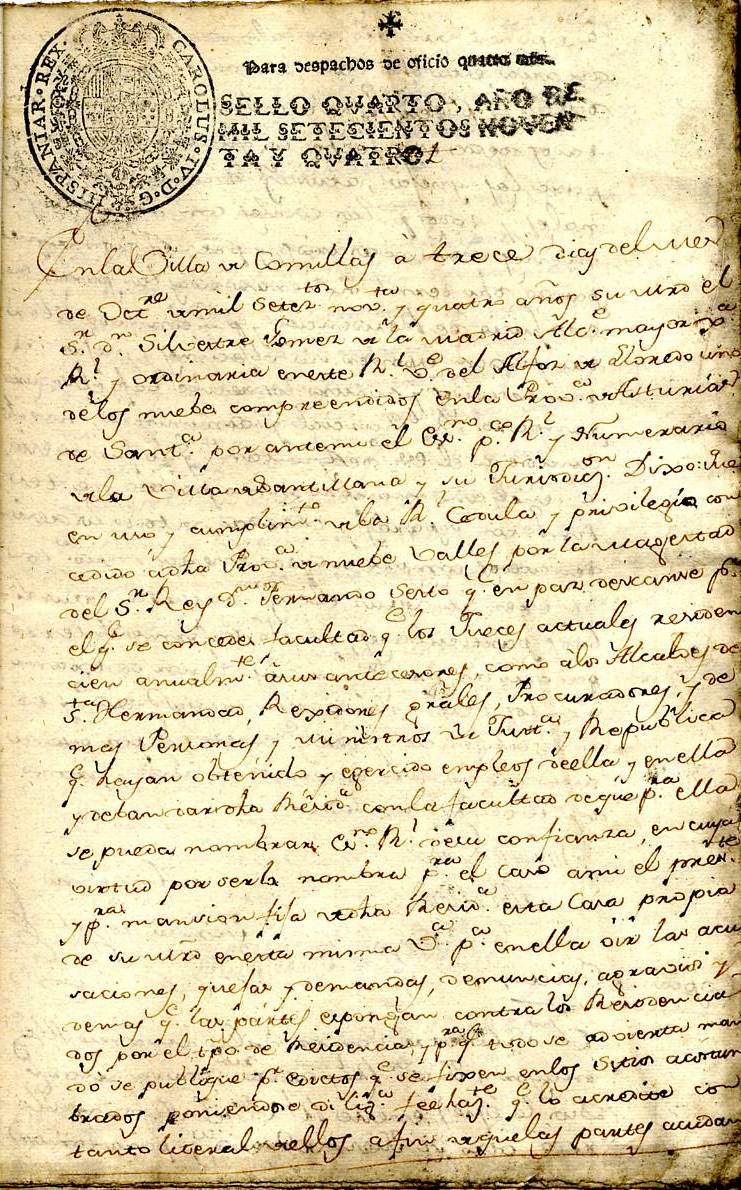 HISPANIAR·REX· CAROLUS·IV·D·G·
Para despachos de oficio quatro mrs.
SELLO QVARTO, AÑO DE
MIL SETECIENTOS NOVEN
TA Y QVATRO
En la Villa de Comillas à trece dias del mes
de Oct.re de mil Setez.tos nov.ta y quatro años su mrd el
S.r d.n Silvestre Gomez de la Madrid Alc.e mayor
R.l y ordinaria en este R.l V.e del Alfoz de Lloredo uno
de los nuebe compreendidos en la Prov.a de Asturias
de Sant.a por antemi el Es.no p.co R.l y Numerario
de la Villa de Santillana y su Jurisdic.on Dixo: que
en uso y cumplim.to de la R.l Cedula y privilegio con
cedido à dha Prov.a de nuebe Valles por la Magestad
del S.r Rey d.n Fernando Sexto q.e en paz descanse p.r
el q.e se concede facultad q.e los Jueces actuales residen
cien anualm.te à sus antecesores, como à los Alcaldes de
s.ta Hermandad, Rexidores grâles, Procuradores, y de
mas Personas y ministros de Just.a y Republica
q.e hayan obtenido y egercido empleos de ella y en ella
y deban dar dha Resid.a con la facultad de que p.ra ella
se pueda nombrar Es.no R.l de su confianza, en cuya
virtud por serlo nombra p.ra el caso a mi el pres.te
y p.ra mansion fija de dha Resid.a esta Casa propia
de su mrd en esta misma V.a p.a en ella oir las acu
saciones, quejas y demandas, denuncias, agravios y
demas q.e las partes expongan contra los Residencia
dos por el tpo de Residencia, y p.ra q.e todo se advierta man
dó se publique p.r edictos q.e se fixen en los Sitios acostum
brados poniendose dilig.a feehaz.te q.e lo acredite con
tanto literal de ellos a fin de que las partes acudan